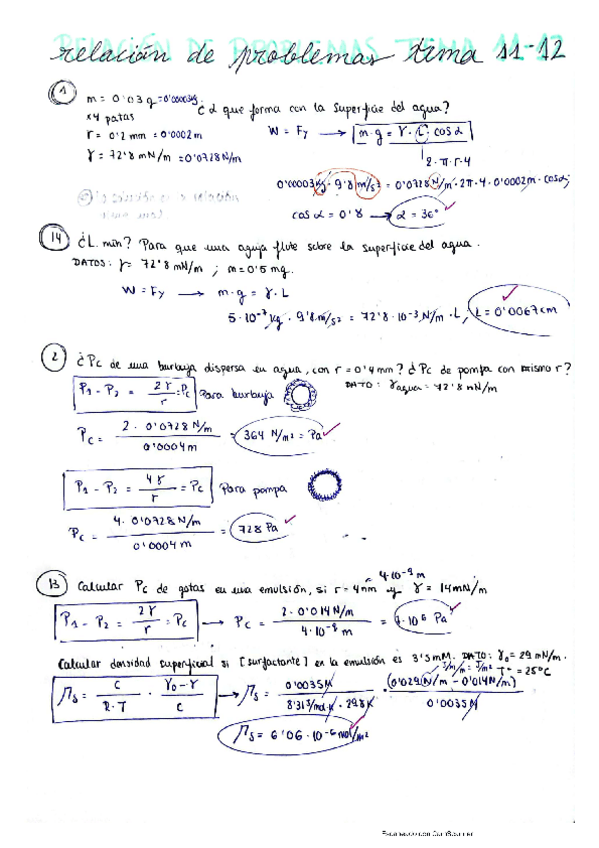 relación de problemas tema 11-12
1 m = 0'03 g = 0'00003 kg. ¿α que forma con la superficie del agua?
x4 patas
r = 0'2 mm = 0'0002 m W = Fγ → m·g = γ·L·cos α
γ = 72'8 mN/m = 0'0728 N/m 2·π·r·4
0'00003 kg · 9'8 m/s² = 0'0728 N/m · 2π·4·0'0002 m · cos α
cos α = 0'8 → α = 36°
14 ¿L min? Para que una aguja flote sobre la superficie del agua.
DATOS: γ = 72'8 mN/m ; m = 0'5 mg.
W = Fγ → m·g = γ·L
5·10⁻⁷ kg · 9'8 m/s² = 72'8·10⁻³ N/m · L ; L = 0'0067 cm
2 ¿Pc de una burbuja dispersa en agua, con r = 0'4 mm? ¿Pc de pompa con mismo r?
DATO: γ agua = 72'8 mN/m
P1 - P2 = 2γ/r = Pc Para burbuja
Pc = 2·0'0728 N/m / 0'0004 m = 364 N/m² = Pa
P1 - P2 = 4γ/r = Pc Para pompa
Pc = 4·0'0728 N/m / 0'0004 m = 728 Pa
13 Calcular Pc de gotas en una emulsión, si r = 4 nm y γ = 14 mN/m
4·10⁻⁹ m
P1 - P2 = 2γ/r = Pc → Pc = 2·0'014 N/m / 4·10⁻⁹ m = 7·10⁶ Pa
Calcular densidad superficial si [surfactante] en la emulsión es 3'5 mM. DATO: γ0 = 29 mN/m.
J/m/m = J/m² T = 25°C
Γs = C/R·T · γ0-γ/C → Γs = 0'0035 M / 8'31 J/mol·K · 298 K · (0'029 N/m - 0'014 N/m) / 0'0035 M
Γs = 6'06·10⁻⁶ mol/m²
Escaneado con CamScanner